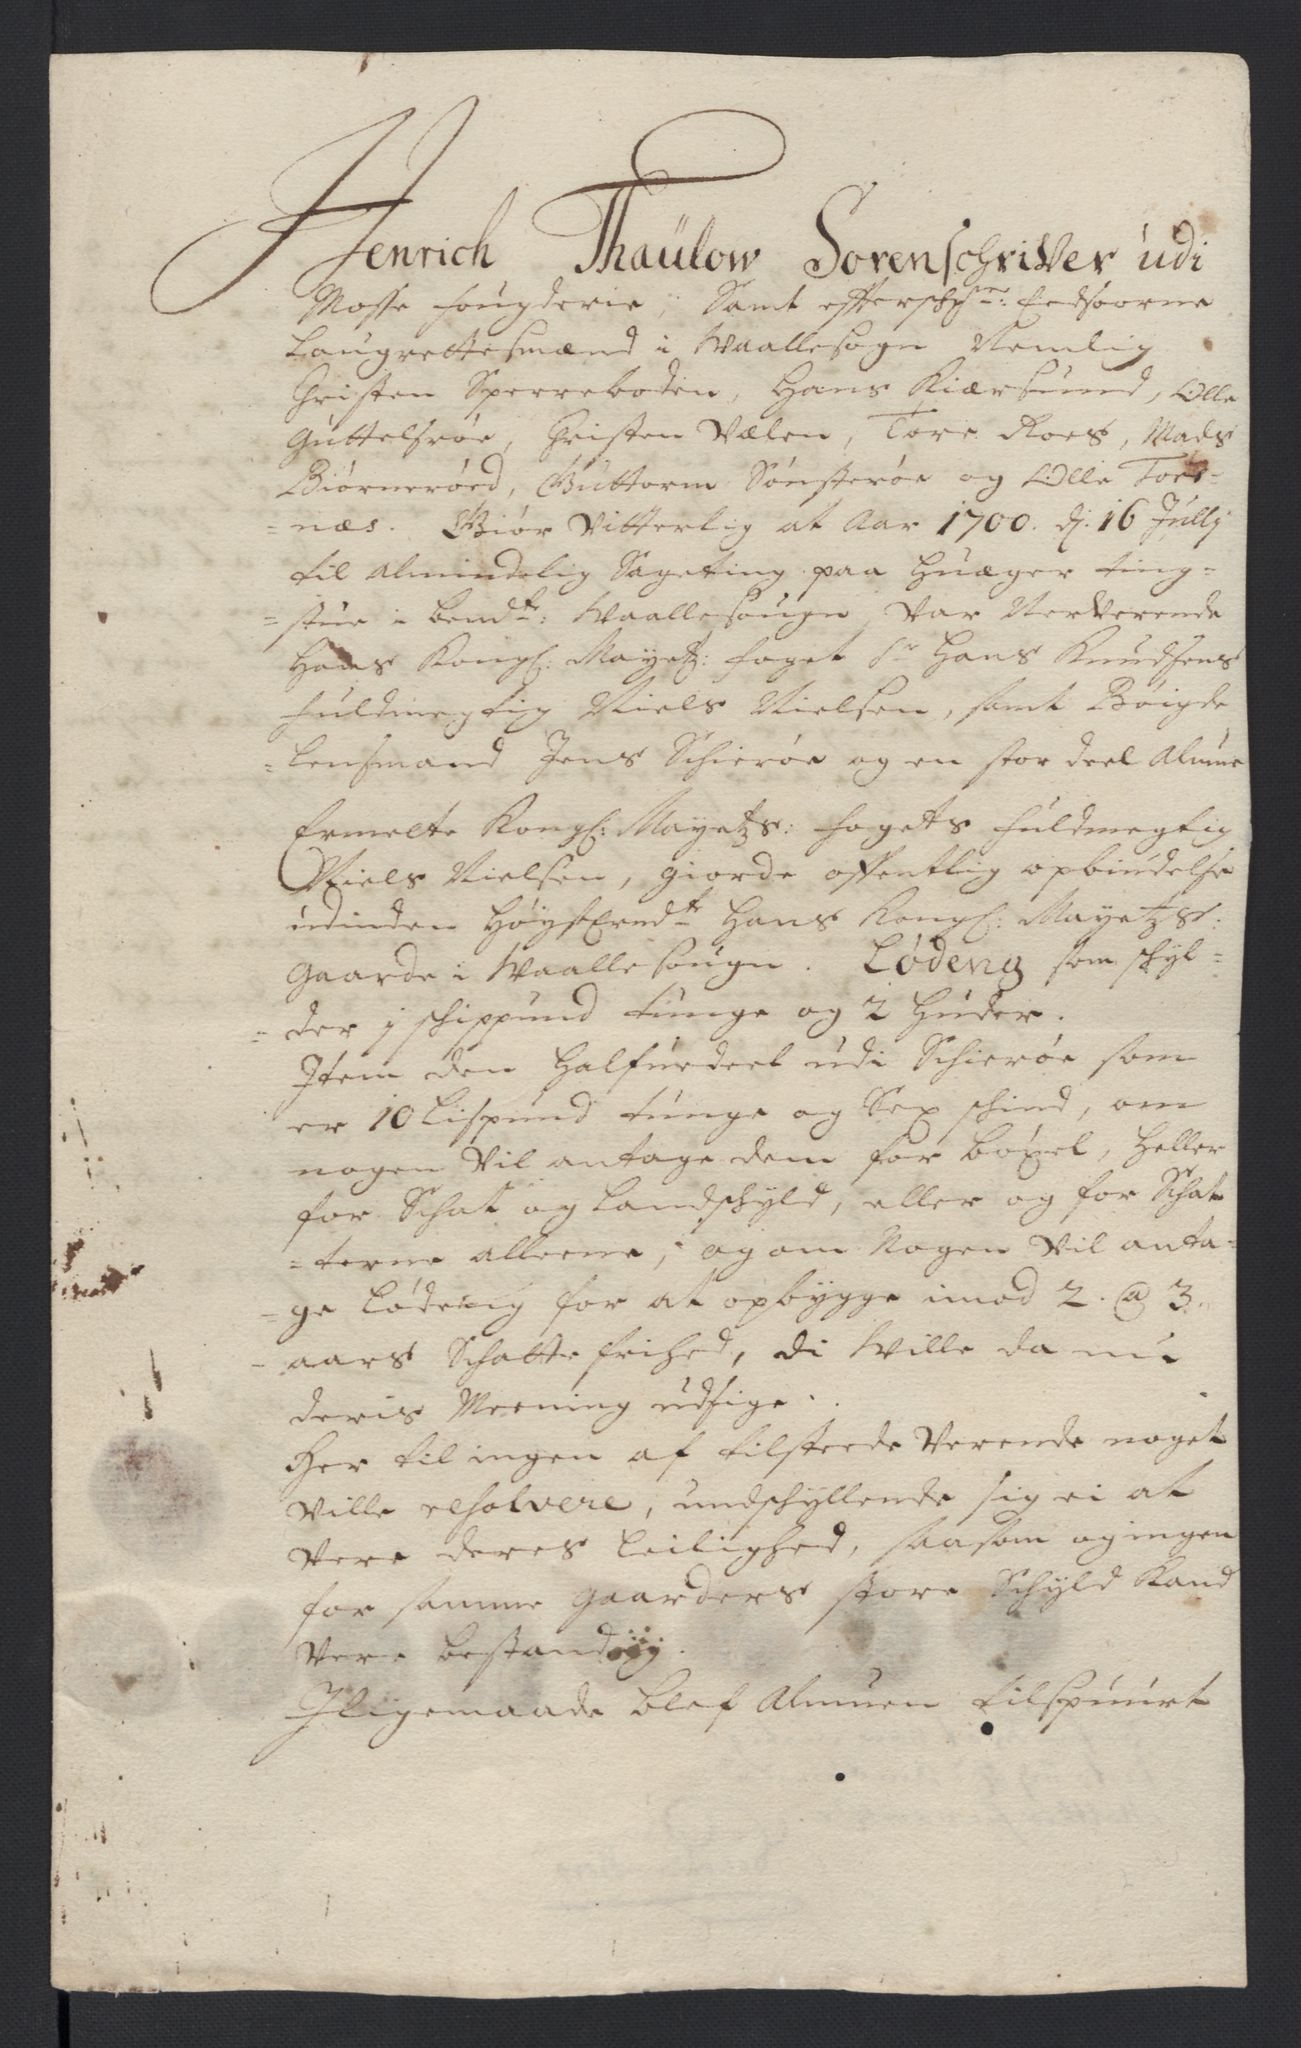 Henrich Thaülow Sorenschriver udi
Mosse fougderie, Samt effterschrne: Eedsoorne
Laugrettesmænd i Waallesogn Nemlig
Christen Sperreboden, Hans Kiærsund, Olle
Guttelsrøe, Christen Vælen, Tore Roes, Mads
Biørnerøed, Guttorm Sønsterøe og Olle Toes-
-næs. Giør Vitterlig at Aar 1700. dj. 16 Jullj
til Almindelig Sageting paa Huæger ting-
-stue i bemdte: Waallesougn, Var Nerverende
Hans Kongl: Mayetz: foget Sr Hans Knudsens
fuldmegtig Niels Nielsen, samt Bøigde
-Lensmand Jens Schierøe og en stor deel Almue
Ermelte Kongl: Mayetzs: fogets fuldmegtig
Niels Nielsen, giorde offentlig opbindelse
udinden Høystermdte Hans Kongl: Mayetzs:
Gaarde i Waallesougn. Lødeng som schyl-
-der j schippund tunge og 2 huder.
Item den Halfuedeel udi Schierøe som
er 10 Lispund tunge og Sex schind, om
nogen Vil antage dem for bøxel, Heller
for Schat og Landschyld, eller og for Schat
-terne alleene, og om Nogen Vil anta-
-ge Lødeng for at opbygge imod 2. @ 3.
-aars Schatte frihed, di Wille da nu
deris Meening udsige.
Her til ingen af tilsteede Verende noget
Ville resolvere, undschyllende sig ei at
Vere deres Leilighed, saasom og ingen
for samme gaarders store Schyld Kand
Vere bestandig.
Jligemaade blef Almuen tilspuurt